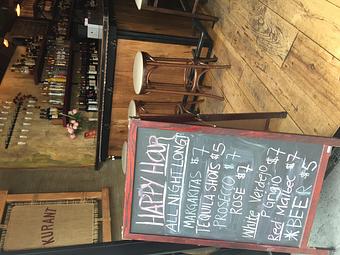 HAPPY HOUR
ALL NIGHT LONG!
MARGARITAS $7
TEQUILA SHOTS $5
PROSECCO $7
ROSE $7
White Verdejo $7
P. Grigio $7
Red Malbec $7
*BEER $5
KURANT